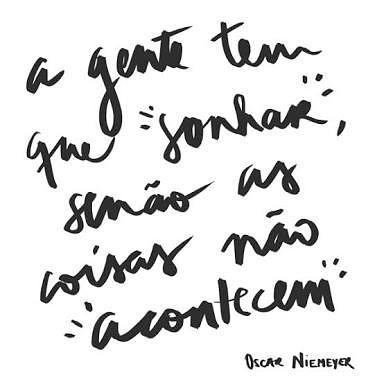 a gente tem
que "sonhar",
senão as
coisas não
"acontecem"
OSCAR NIEMEYER